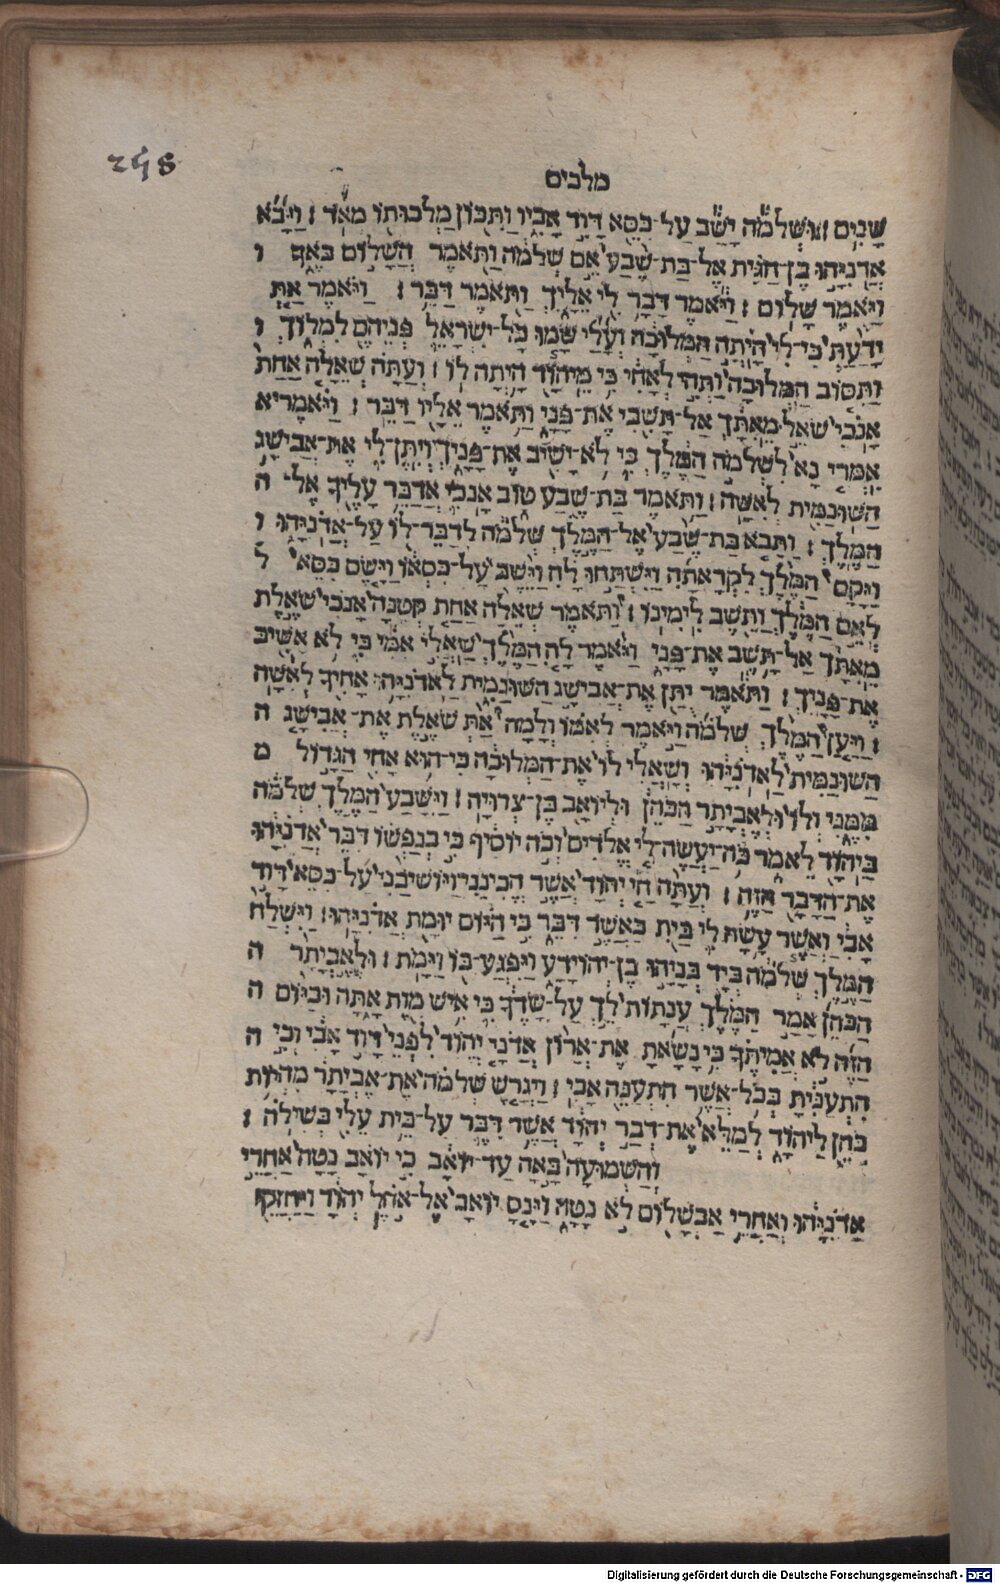 248
מלכים
שָׁנִים׃ וּשְׁלֹמֹה יָשַׁב עַל־כִּסֵּא דָּוִד אָבִיו וַתִּכּוֹן מַלְכוּתוֹ מְאֹד׃ וַיָּבֹא
אֲדֹנִיָּהוּ בֶן־חַגִּית אֶל־בַּת־שֶׁבַע אֵם שְׁלֹמֹה וַתֹּאמֶר הֲשָׁלוֹם בֹּאֶךָ ו
וַיֹּאמֶר שָׁלוֹם׃ וַיֹּאמֶר דָּבָר לִי אֵלָיִךְ וַתֹּאמֶר דַּבֵּר׃ וַיֹּאמֶר אַתְּ
יָדַעַתְּ כִּי־לִי הָיְתָה הַמְּלוּכָה וְעָלַי שָׂמוּ כָל־יִשְׂרָאֵל פְּנֵיהֶם לִמְלוֹךְ ו
וַתִּסּוֹב הַמְּלוּכָה וַתְּהִי לְאָחִי כִּי מֵיְהוָֹד הָיְתָה לּוֹ׃ וְעַתָּה שְׁאֵלָה אַחַת
אָנֹכִי שֹׁאֵל מֵאִתָּךְ אַל־תָּשִׁבִי אֶת־פָּנָי וַתֹּאמֶר אֵלָיו דַּבֵּר׃ וַיֹּאמֶר א
אִמְרִי נָא לִשְׁלֹמֹה הַמֶּלֶךְ כִּי לֹא־יָשִׁיב אֶת־פָּנָיִךְ וְיִתֶּן־לִי אֶת־אֲבִישַׁג
הַשּׁוּנַמִּית לְאִשָּׁה׃ וַתֹּאמֶר בַּת־שֶׁבַע טוֹב אָנֹכִי אֲדַבֵּר עָלֶיךָ אֶל־ ה
הַמֶּלֶךְ׃ וַתָּבֹא בַת־שֶׁבַע אֶל־הַמֶּלֶךְ שְׁלֹמֹה לְדַבֶּר־לוֹ עַל־אֲדֹנִיָּהוּ ו
וַיָּקָם הַמֶּלֶךְ לִקְרָאתָהּ וַיִּשְׁתַּחוּ לָהּ וַיֵּשֶׁב עַל־כִּסְאוֹ וַיָּשֶׂם כִּסֵּא ל
לְאֵם הַמֶּלֶךְ וַתֵּשֶׁב לִימִינוֹ׃ וַתֹּאמֶר שְׁאֵלָה אַחַת קְטַנָּה אָנֹכִי שֹׁאֶלֶת
מֵאִתָּךְ אַל־תָּשֶׁב אֶת־פָּנָי וַיֹּאמֶר לָהּ הַמֶּלֶךְ שַׁאֲלִי אִמִּי כִּי לֹא אָשִׁיב
אֶת־פָּנָיִךְ׃ וַתֹּאמֶר יֻתַּן אֶת־אֲבִישַׁג הַשּׁוּנַמִּית לַאֲדֹנִיָּהוּ אָחִיךָ לְאִשָּׁה
׃ וַיַּעַן הַמֶּלֶךְ שְׁלֹמֹה וַיֹּאמֶר לְאִמּוֹ וְלָמָה אַתְּ שֹׁאֶלֶת אֶת־אֲבִישַׁג ה
הַשּׁוּנַמִּית לַאֲדֹנִיָּהוּ וְשַׁאֲלִי לוֹ אֶת־הַמְּלוּכָה כִּי־הוּא אָחִי הַגָּדוֹל מ
מִמֶּנִּי וְלוֹ וּלְאֶבְיָתָר הַכֹּהֵן וּלְיוֹאָב בֶּן־צְרוּיָה׃ וַיִּשָּׁבַע הַמֶּלֶךְ שְׁלֹמֹה
בַּיהוָֹד לֵאמֹר כֹּה־יַעֲשֶׂה־לִּי אֱלֹדִים וְכֹה יוֹסִיף כִּי בְנַפְשׁוֹ דִּבֶּר אֲדֹנִיָּהוּ
אֶת־הַדָּבָר הַזֶּה׃ וְעַתָּה חַי יְהוָֹד אֲשֶׁר הֱכִינַנִי וַיּוֹשִׁיבַנִי עַל־כִּסֵּא דָּוִד
אָבִי וַאֲשֶׁר עָשָׂה לִי בַּיִת כַּאֲשֶׁר דִּבֵּר כִּי הַיּוֹם יוּמַת אֲדֹנִיָּהוּ׃ וַיִּשְׁלַח
הַמֶּלֶךְ שְׁלֹמֹה בְּיַד בְּנָיָהוּ בֶן־יְהוֹיָדָע וַיִּפְגַּע־בּוֹ וַיָּמֹת׃ וּלְאֶבְיָתָר ה
הַכֹּהֵן אָמַר הַמֶּלֶךְ עֲנָתוֹת לֵךְ עַל־שָׂדֶךָ כִּי אִישׁ מָוֶת אָתָּה וּבַיּוֹם ה
הַזֶּה לֹא אֲמִיתֶךָ כִּי־נָשָׂאתָ אֶת־אֲרוֹן אֲדֹנָי יֱהוִֹד לִפְנֵי דָּוִד אָבִי וְכִי ה
הִתְעַנִּיתָ בְּכֹל־אֲשֶׁר הִתְעַנָּה אָבִי׃ וַיְגָרֶשׁ שְׁלֹמֹה אֶת־אֶבְיָתָר מִהְיוֹת
כֹּהֵן לַיהוָֹד לְמַלֵּא אֶת־דְּבַר יְהוָֹד אֲשֶׁר דִּבֶּר עַל־בֵּית עֵלִי בְּשִׁילֹה׃
וְהַשְּׁמוּעָה בָּאָה עַד־יוֹאָב כִּי יוֹאָב נָטָה אַחֲרֵי
אֲדֹנִיָּהוּ וְאַחֲרֵי אַבְשָׁלוֹם לֹא נָטָה וַיָּנָס יוֹאָב אֶל־אֹהֶל יְהוָֹד וַיַּחֲזֵק
Digitalisierung gefördert durch die Deutsche Forschungsgemeinschaft - DFG